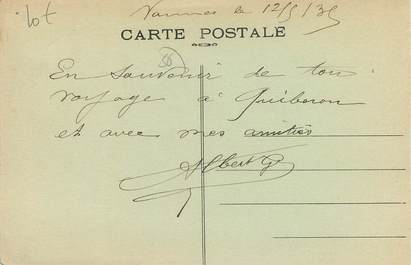 lot
Vannes le 12/5/35
CARTE POSTALE
56
En souvenir de ton
voyage à Quiberon
et avec mes amitiés
Albert G